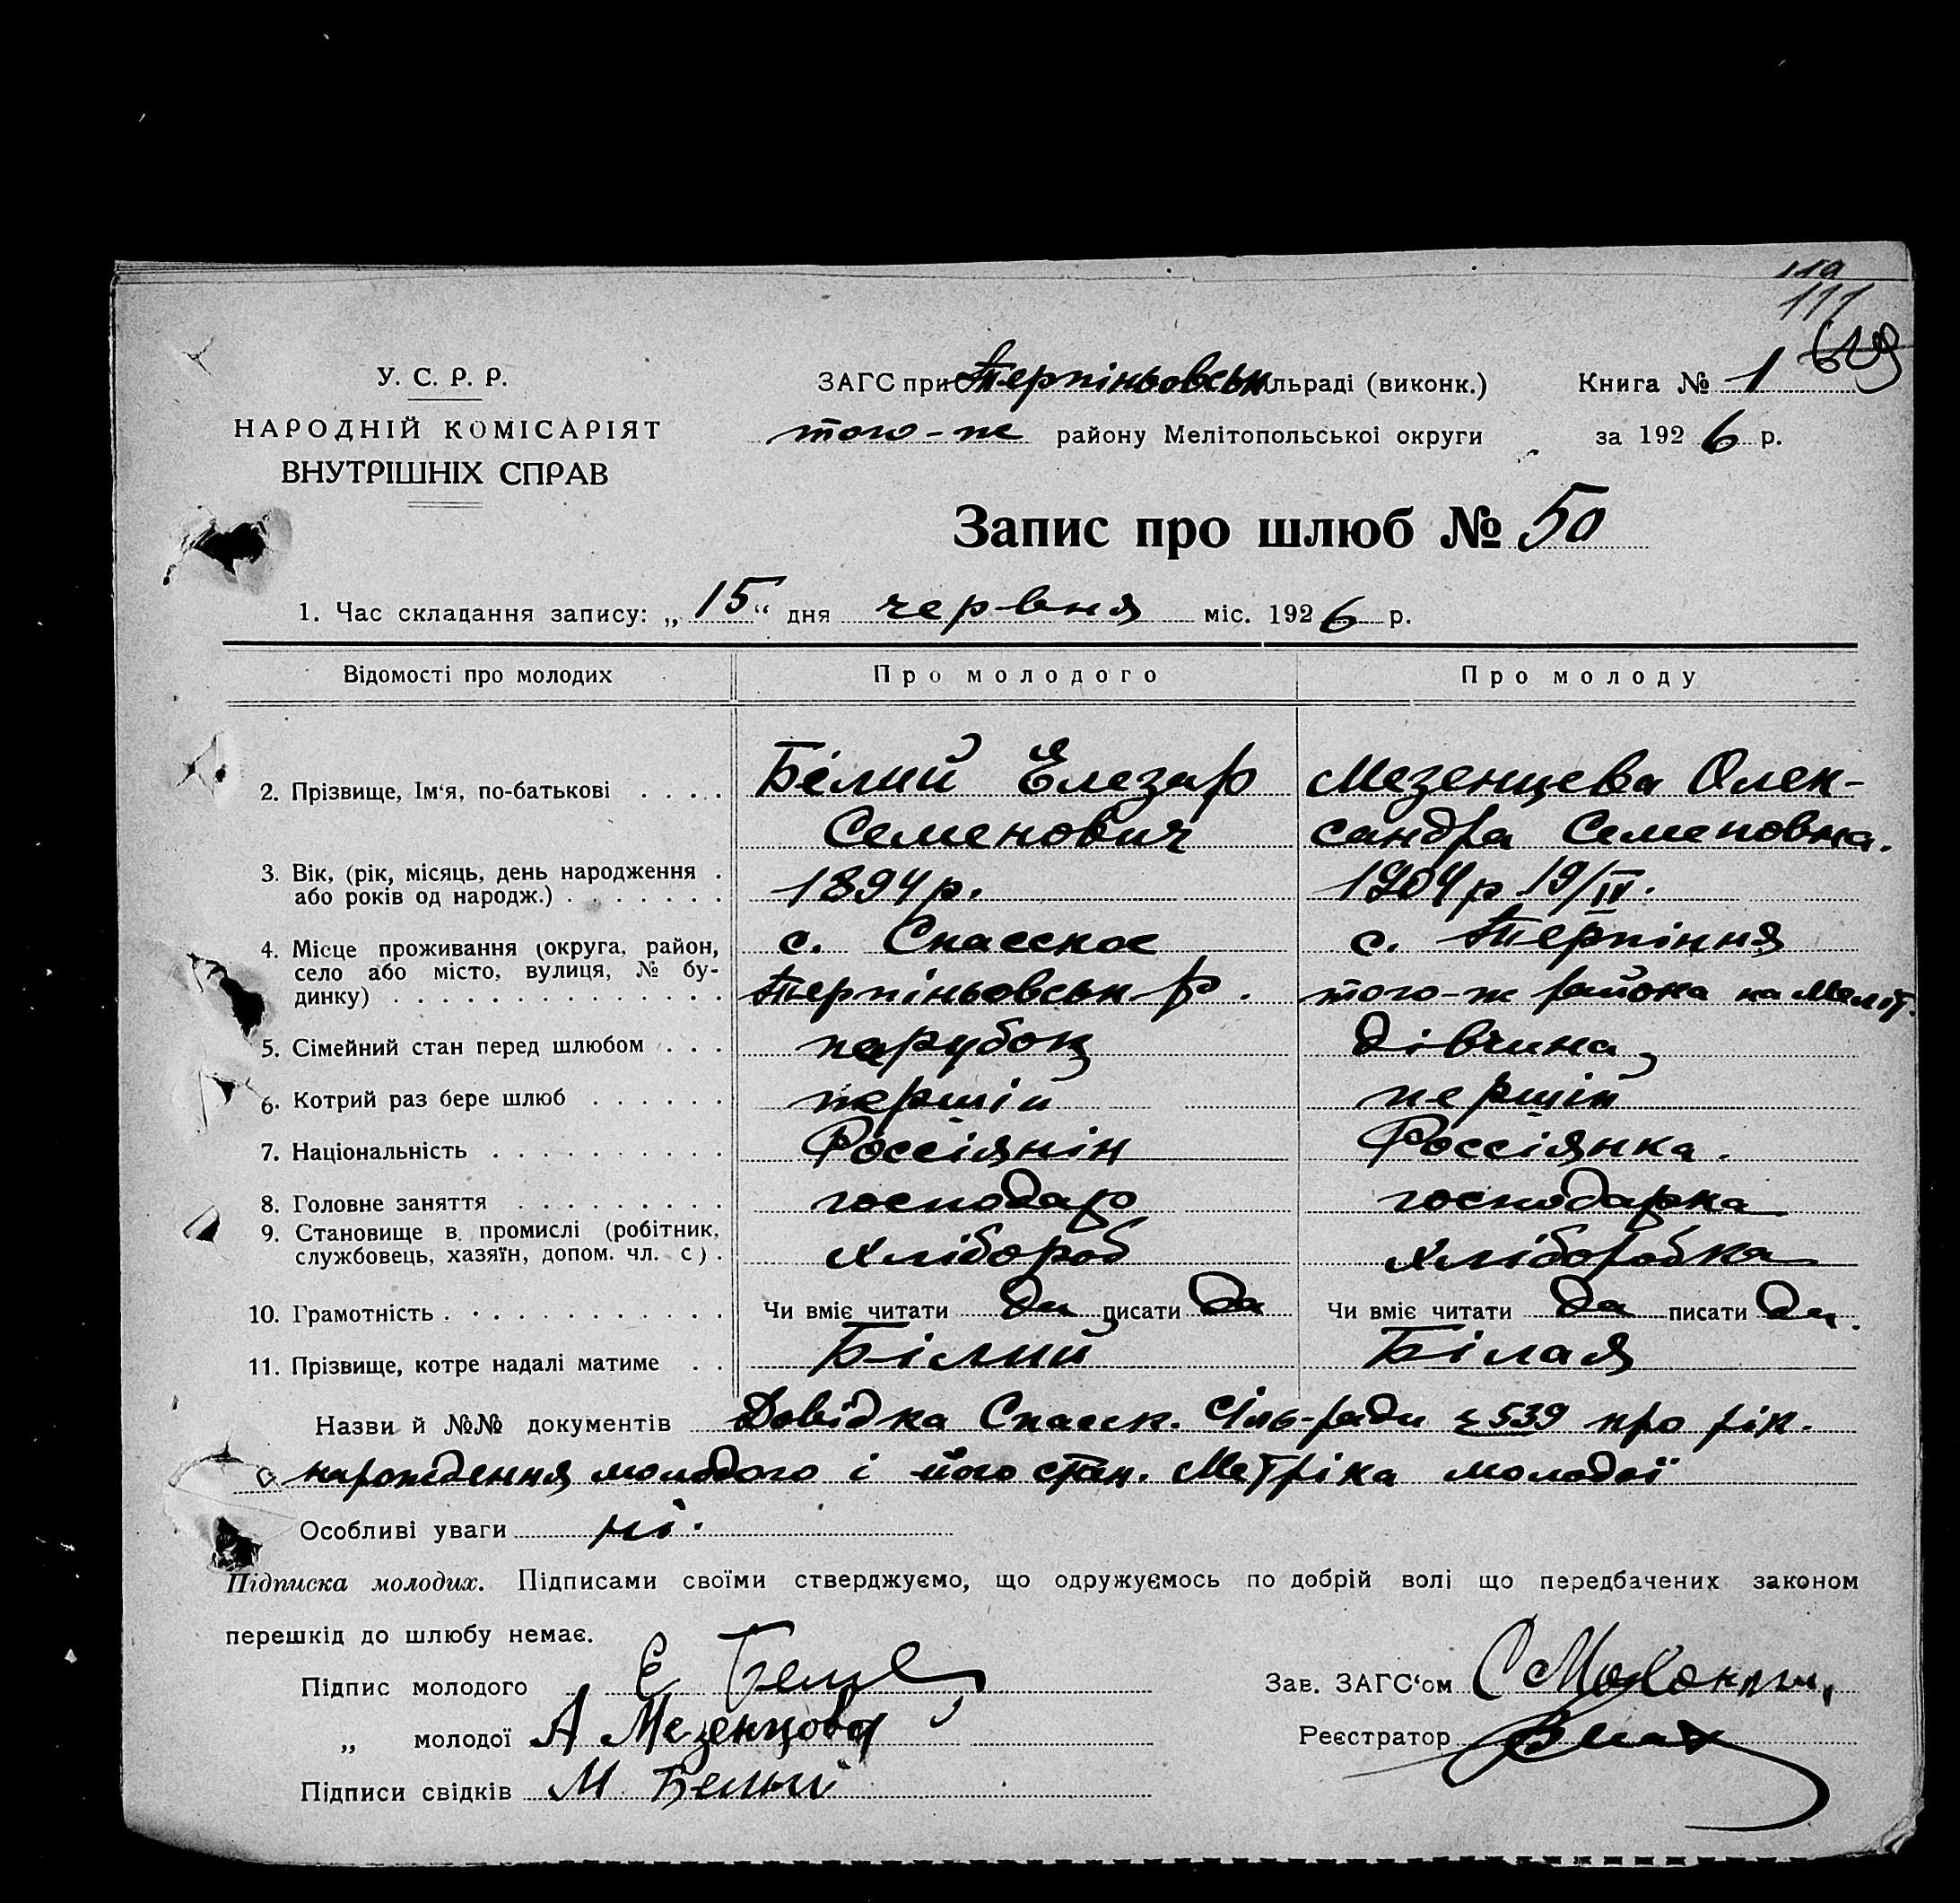 111
У. С. Р. Р.
НАРОДНІЙ КОМІСАРІЯТ
ВНУТРІШНІХ СПРАВ
ЗАГС при Терпіньовськ ільраді (виконк.) Книга № 1
того-ж району Мелітопольської округи за 1926 р.
Запис про шлюб № 50
1. Час складання запису: „15“ дня червня міс. 1926 р.
Відомості про молодих Про молодого Про молоду
2. Прізвище, Ім‘я, по-батькові . . . . Білий Елезар Мезенцева Олек-
Семенович сандра Семеновна.
3. Вік, (рік, місяць, день народження . 1894 р. 1904 р 19/IV.
або років од народж.) . . . . . . .
4. Місце проживання (округа, район, с. Спасское с. Терпіння
село або місто, вулиця, № бу-
динку) . . . . . . . . . . . . . . Терпіньовськ р. того-ж района на Меліт.
5. Сімейний стан перед шлюбом . . . парубок дівчина
6. Котрий раз бере шлюб . . . . . . першій першій
7. Національність . . . . . . . . . . Россіянін Россіянка.
8. Головне заняття . . . . . . . . . господар господарка
9. Становище в промислі (робітник, хлібороб хліборобка
службовець, хазяїн, допом. чл. с) .
10. Грамотність . . . . . . . . . . . Чи вміє читати да писати да Чи вміє читати да писати да.
11. Прізвище, котре надалі матиме . . Білий Білая
Назви й №№ документів Довідка Спасск. Сіль-ради 539 про рік.
народження молодого і його стан. Метріка молодої
Особливі уваги ні.
Підписка молодих. Підписами своїми стверджуємо, що одружуємось по добрій волі що передбачених законом
перешкід до шлюбу немає.
Підпис молодого Е Зав. ЗАГС‘ом
„ молодої А Мезенцова Реєстратор
Підписи свідків М Белый